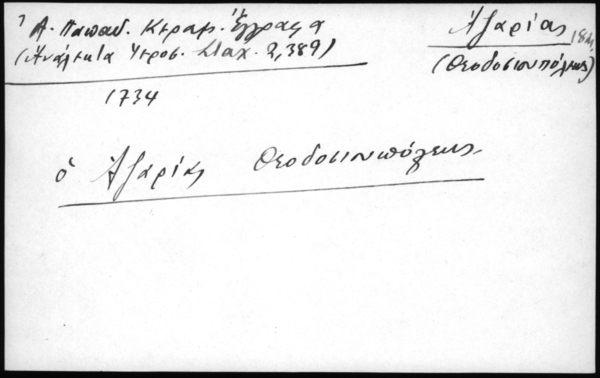 Α. Παπαδ. Κεραμ. Ἔγγραφα
(Ἀνάλεκτα Ἱεροσ. Σταχ. 2, 389)
Ἀζαρίας 18 αἰ.
(Θεοδοσιουπόλεως)
1734
ὁ Ἀζαρίας Θεοδοσιουπόλεως